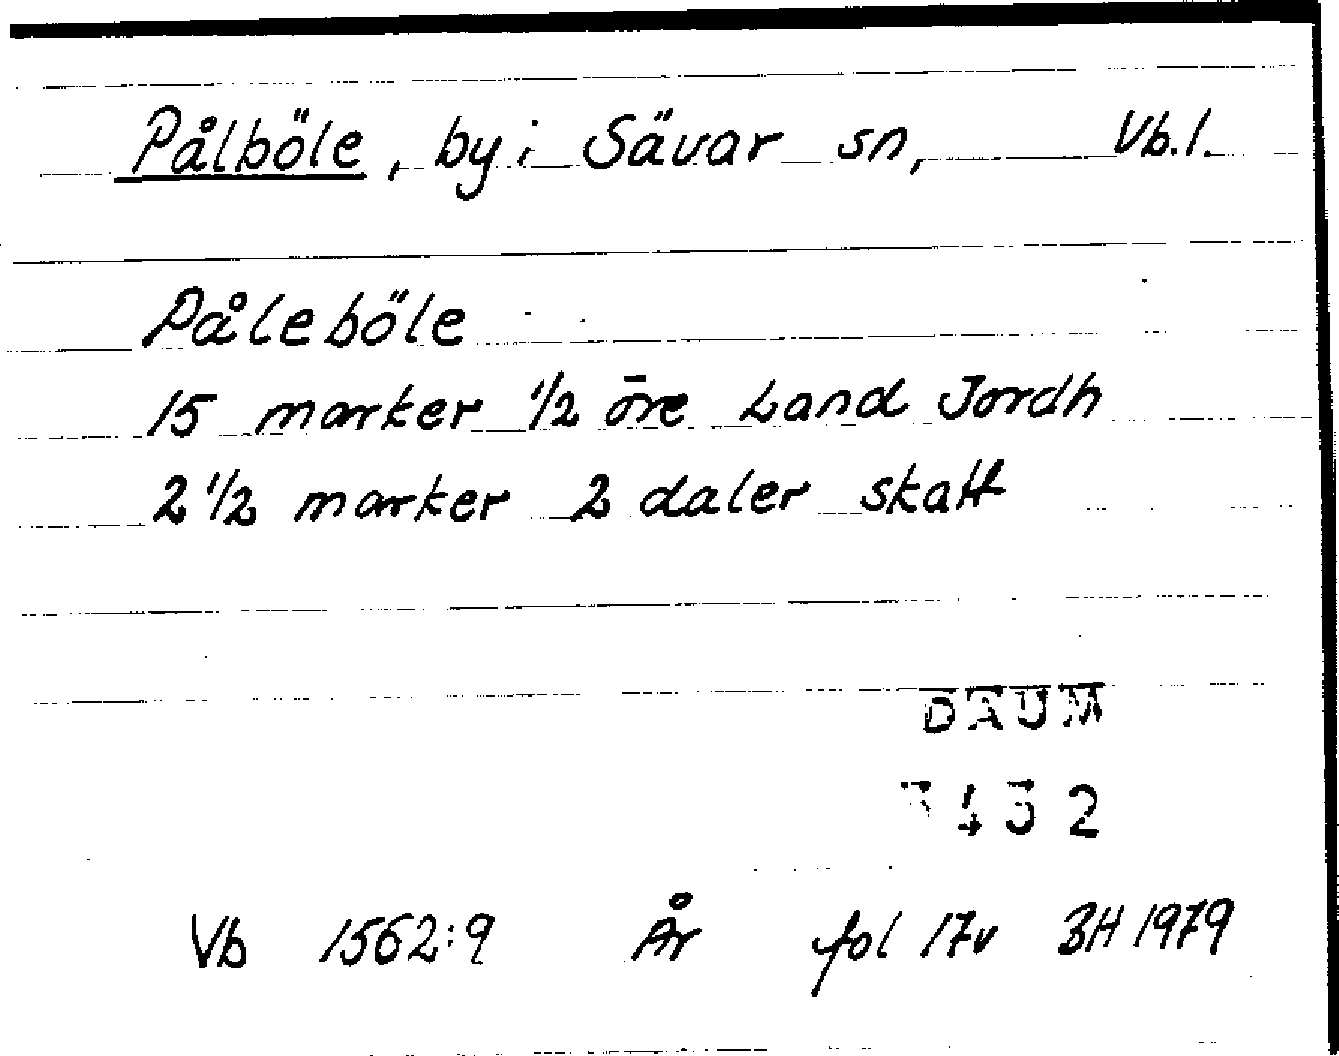 Pålböle, by i Sävar sn, Vb.l.
Påleböle
15 marker 1/2 öre Land Jordh
2 1/2 marker 2 daler skatt
DAUM
Vb 1562:9 År fol 17v BH 1979